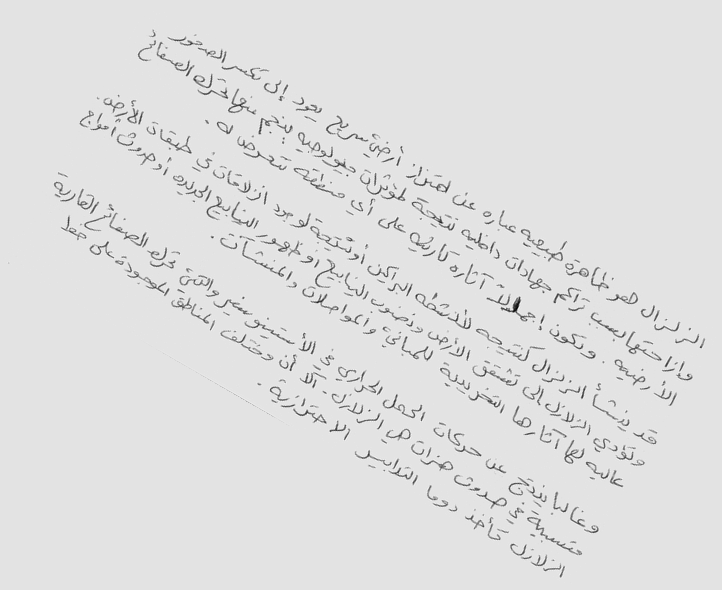 الزلزال هو ظاهرة طبيعيه عباره عن اهتزاز أرضي سريع يعود إلى تكسر الصخور
وإزاحتها بسبب تراكم جهادات داخليه نتيجة لمؤثرات جيولوجيه ينجم عنها تحرك الصفائح
الأرضيه . وتكون إجمالاً آثاره كارثيه على أي منطقه تتعرض له .
قد ينشأ الزلزال كنتيجه لأنشطه البراكين أو نتيجة لوجود انزلاقات في طبقات الأرض.
وتؤدي الزلازل إلى تشقق الأرض ونضوب الينابيع أو ظهور الينابيع الجديده أو حدوث أمواج
عاليه لها آثارها التخريبية للمباني والمواصلات والمنشآت .
وغالبا ينتج عن حركات الحمل الحراري في الأستينوسفير والتي تحرك الصفائح القارية
متسببة في حدوث هزات هي الزلازل . الا أن ومختلف المناطق الموجودة على خط
الزلازل تأخذ دوما التدابير الاحترازية .